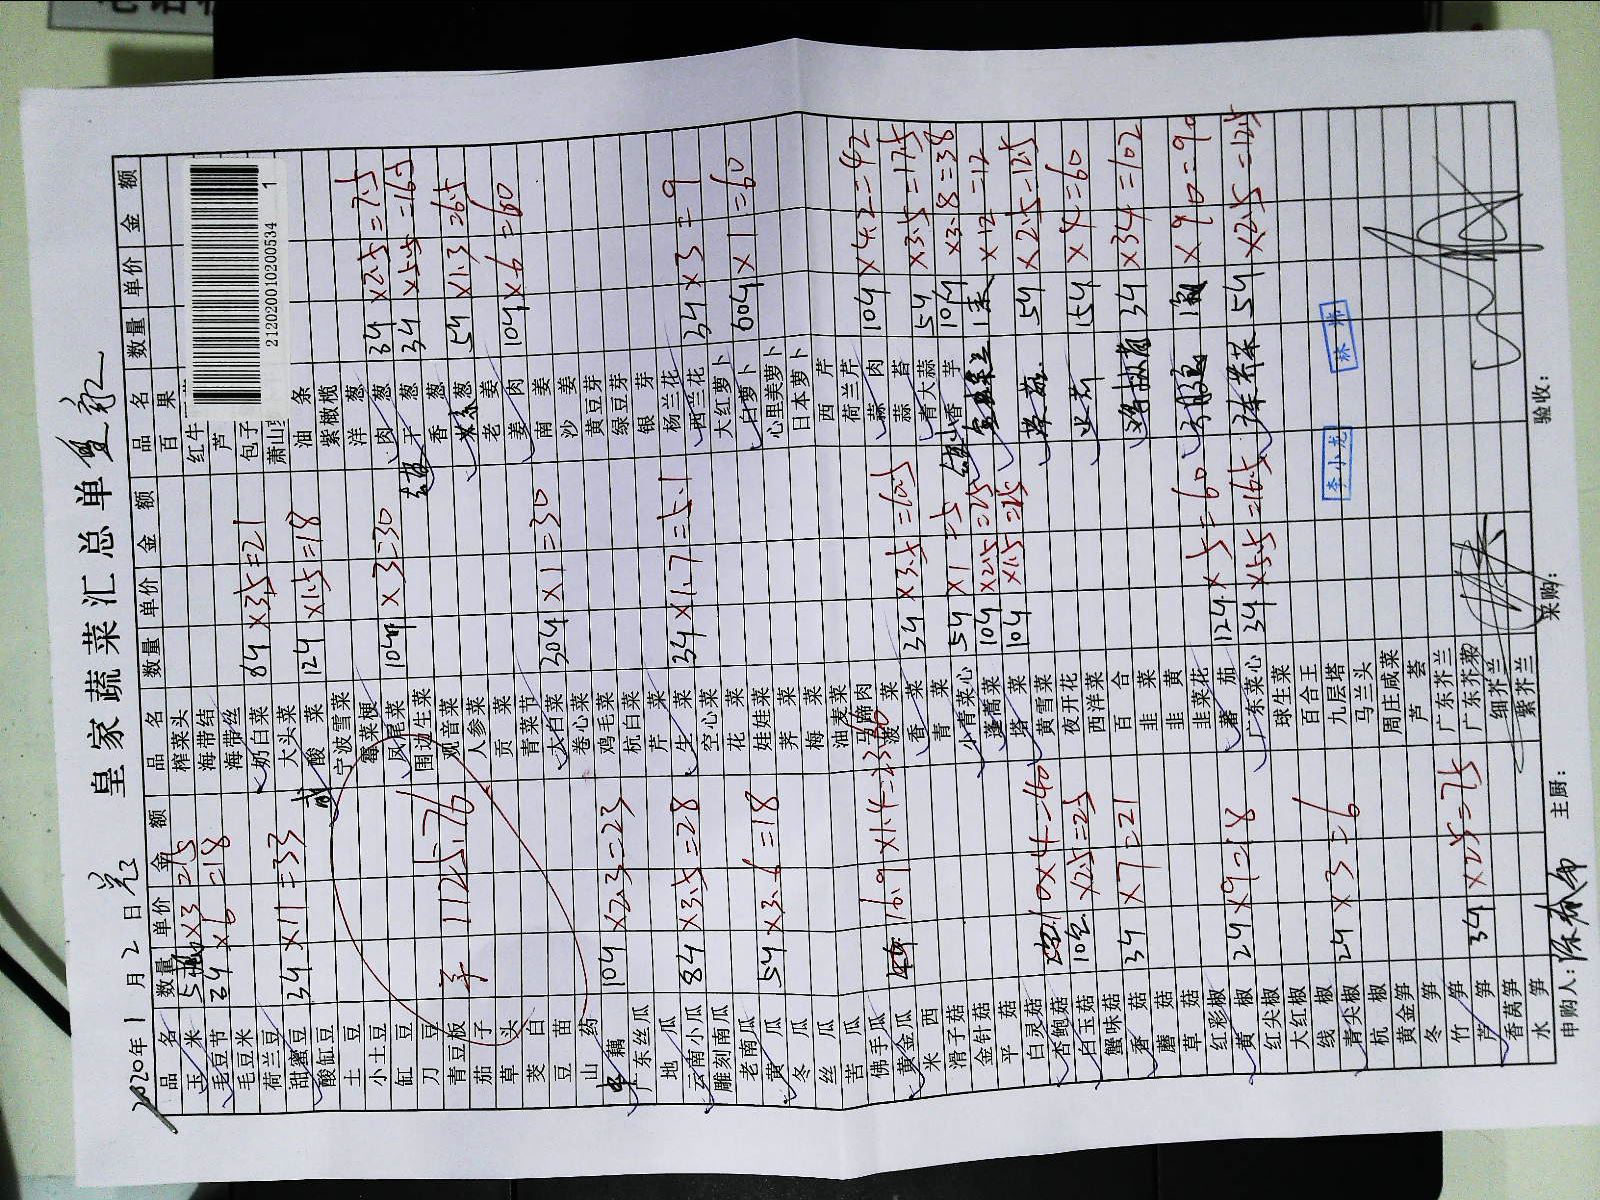 皇家蔬菜汇总单
2020年1月2日
品名 数量 单价 金额 品名 数量 单价 金额 品名 数量 单价 金额
玉米 ×3 榨菜头 百果
毛豆节 34 ×6=18 海带结 红牛
毛豆米 海带丝 芦
荷兰豆 奶白菜 84×3.5=21 包子
甜蜜豆 34×11=33 大头菜 萧山
酸缸豆 咸酸菜 124×1.5=18 油条
土豆 宁波雪菜 紫橄榄
小土豆 霉菜梗 洋葱 34×2.5=7.5
缸豆 凤尾菜 104×3=30 肉葱 34×5.5=16.5
刀豆 围边生菜 干葱
青豆板 1125.76 观音菜 香葱 54×1.3=6.5
茄子 人参菜 米葱
草头 贡菜 老姜 104×6=60
茭白 青菜节 姜肉
豆苗 大白菜 304×1=30 南姜
山药 卷心菜 沙姜
藕 104×2.3=23 鸡毛菜 黄豆芽
广东丝瓜 杭白菜 绿豆芽
地瓜 芹菜 银芽
云南小瓜 84×3.5=28 生菜 34×1.7=5.1 杨兰花
雕刻南瓜 空心菜 西兰花 34×3=9
老南瓜 花菜 大红萝卜
黄瓜 54×3.6=18 娃娃菜 白萝卜 604×1=60
冬瓜 荠菜 心里美萝卜
丝瓜 梅菜 日本萝卜
苦瓜 油麦菜 西芹
佛手瓜 马蹄肉 荷兰芹
黄金瓜 16.9×1.4=23.66 菠菜 蒜肉 104×4.2=42
米西 香菜 34×3.5=10.5 蒜苔
滑子菇 青菜 青大蒜 54×3.5=17.5
金针菇 小青菜心 54×1=5 香芋 104×3.8=38
平菇 蓬蒿菜 104×2.5=25 ×12=12
白灵菇 塔菜 104×1.5=15
杏鲍菇 10×4=40 黄雪菜 54×2.5=12.5
白玉菇 10包×2.5=25 夜开花
蟹味菇 西洋菜 154×4=60
香菇 34×7=21 百合
蘑菇 韭菜 34×34=102
草菇 韭黄
红彩椒 韭菜花 ×90=90
黄椒 24×9=18 蕃茄 124×5=60
红尖椒 广东菜心 34×5.5=16.5 54×2.5=12.5
大红椒 球生菜
线椒 百合王
青尖椒 24×3=6 九层塔
杭椒 马兰头
黄金笋 周庄咸菜
冬笋 芦荟
竹笋 广东芥兰
芦笋 34×2.5=7.5 广东芥菜
香莴笋 细芥兰
水笋 紫芥兰
申购人: 主厨: 采购: 验收:
李小龙
林
212020010200534 1